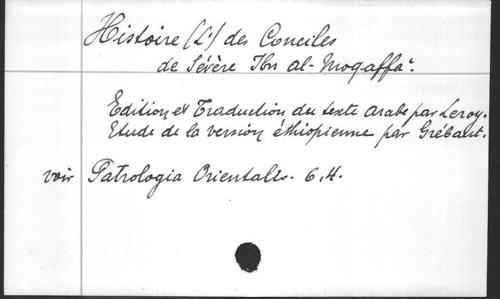 Histoire (L') des Conciles
de Sévère Ibn al-Moqaffaʿ.
Edition et Traduction du texte arabe par Leroy.
Etude de la version éthiopienne par Grébaut.
voir Patrologia Orientalis. 6,4.